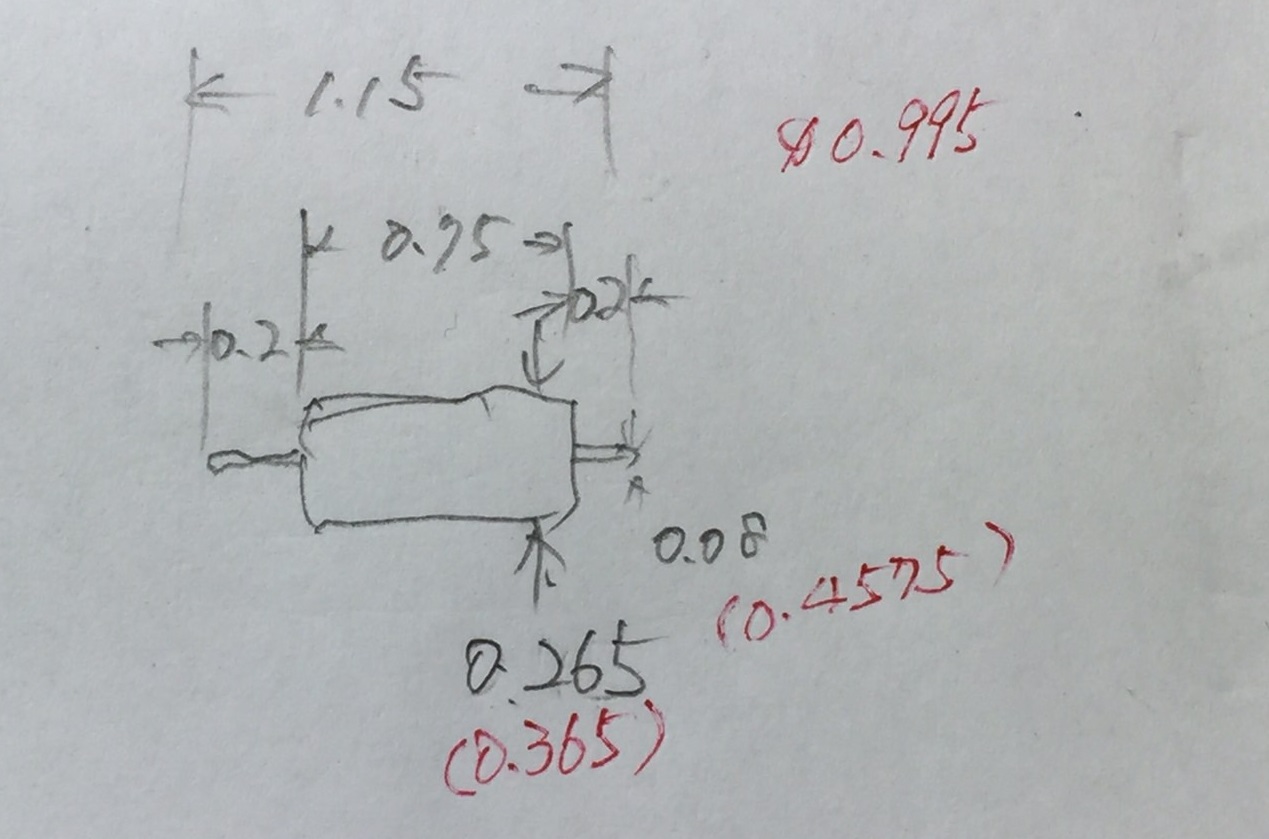 1.15
$0.995
0.75
0.2
0.2
0.08
(0.4575)
0.265
(0.365)